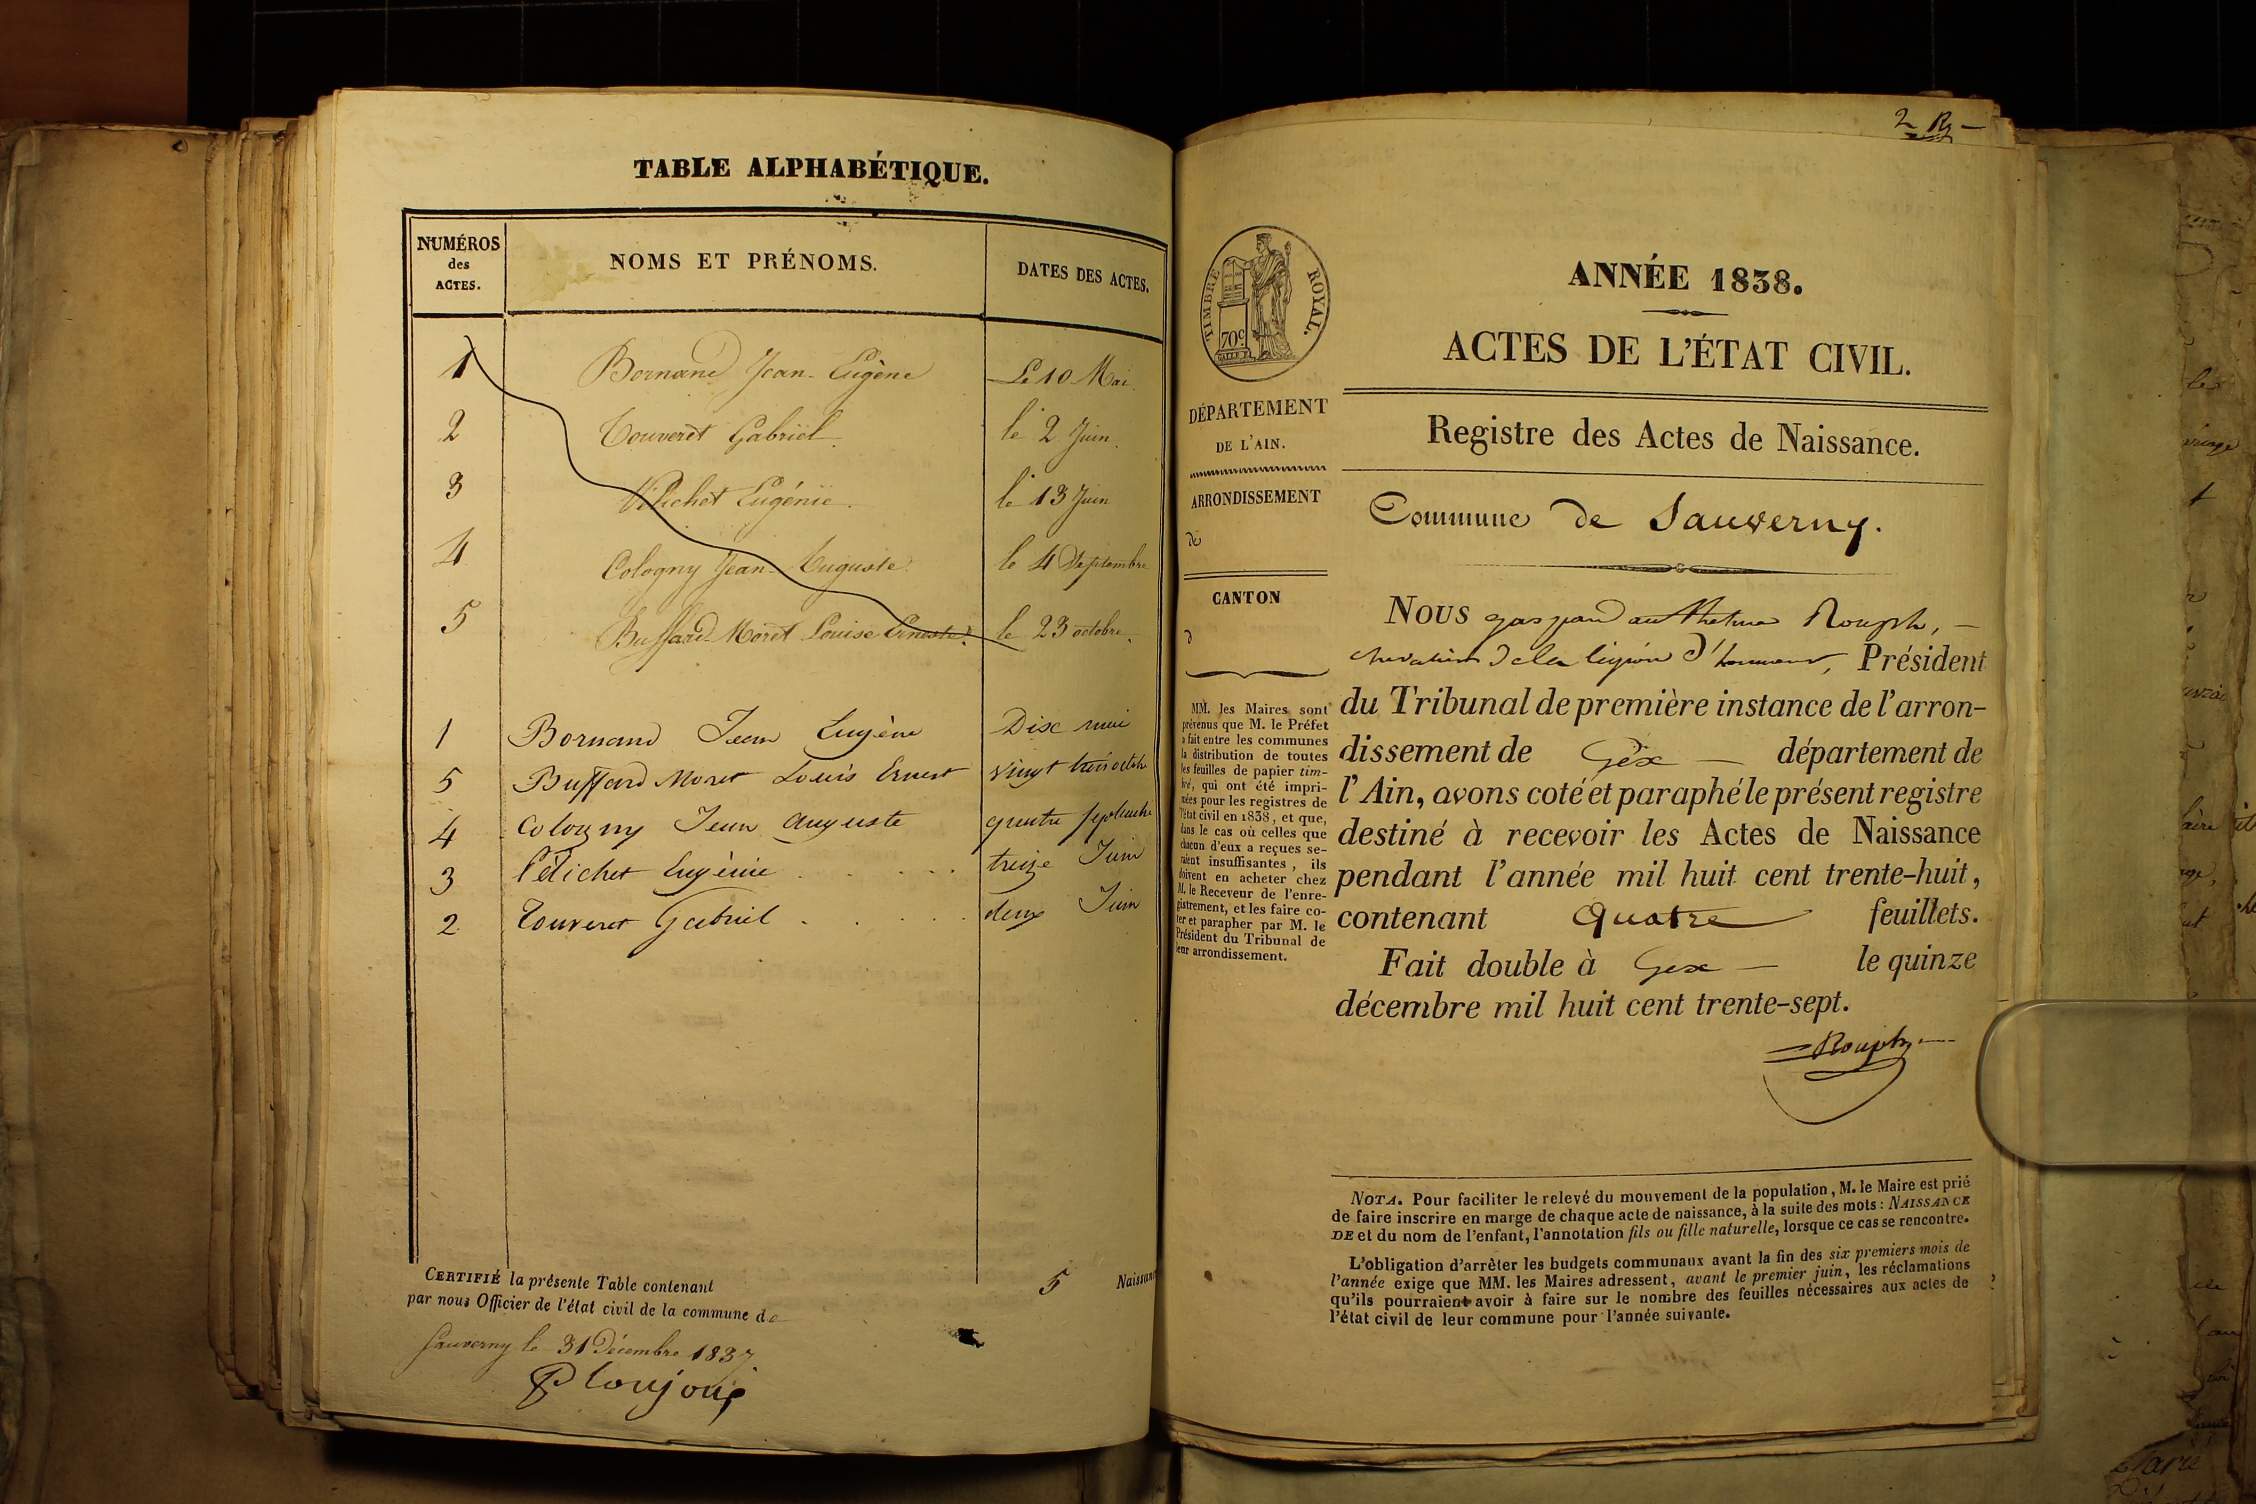 TABLE ALPHABÉTIQUE.
NUMÉROS des ACTES.
NOMS ET PRÉNOMS.
DATES DES ACTES.
1 Bornand Jean-Eugène Le 10 Mai.
2 Touveret Gabriel. le 2 Juin.
3 Pélichet Eugénie. le 13 Juin
4 Cologny Jean-Auguste. le 4 Septembre
5 Buffard-Moret Louise Erneste. le 23 octobre.
1 Bornand Jean Eugène Dix mai
5 Buffard Moret Louis Ernest vingt trois octobre
4 Cologny Jean Auguste quatre septembre
3 Pélichet Eugénie . . . . . treize Juin
2 Touveret Gabriel . . . . deux Juin
CERTIFIÉ la présente Table contenant 5 Naissan
par nous Officier de l'état civil de la commune de
Sauverny le 31 Décembre 1837
2
TIMBRE ROYAL.
70c
DÉPARTEMENT
DE L'AIN.
ARRONDISSEMENT
de
CANTON
d
MM. les Maires sont
prévenus que M. le Préfet
a fait entre les communes
la distribution de toutes
les feuilles de papier tim-
bré, qui ont été impri-
mées pour les registres de
l'état civil en 1838, et que,
dans le cas où celles que
chacun d'eux a reçues se-
raient insuffisantes, ils
doivent en acheter chez
M. le Receveur de l'enre-
gistrement, et les faire co-
ter et parapher par M. le
Président du Tribunal de
leur arrondissement.
ANNÉE 1838.
ACTES DE L'ÉTAT CIVIL.
Registre des Actes de Naissance.
Commune de Sauverny.
NOUS gaspard anthelme Rouph,
chevalier de la légion d'honneur, Président
du Tribunal de première instance de l'arron-
dissement de Gex — département de
l'Ain, avons coté et paraphé le présent registre
destiné à recevoir les Actes de Naissance
pendant l'année mil huit cent trente-huit,
contenant Quatre feuillets.
Fait double à Gex — le quinze
décembre mil huit cent trente-sept.
Rouph
NOTA. Pour faciliter le relevé du mouvement de la population, M. le Maire est prié
de faire inscrire en marge de chaque acte de naissance, à la suite des mots : NAISSANCE
DE et du nom de l'enfant, l'annotation fils ou fille naturelle, lorsque ce cas se rencontre.
L'obligation d'arrêter les budgets communaux avant la fin des six premiers mois de
l'année exige que MM. les Maires adressent, avant le premier juin, les réclamations
qu'ils pourraient avoir à faire sur le nombre des feuilles nécessaires aux actes de
l'état civil de leur commune pour l'année suivante.